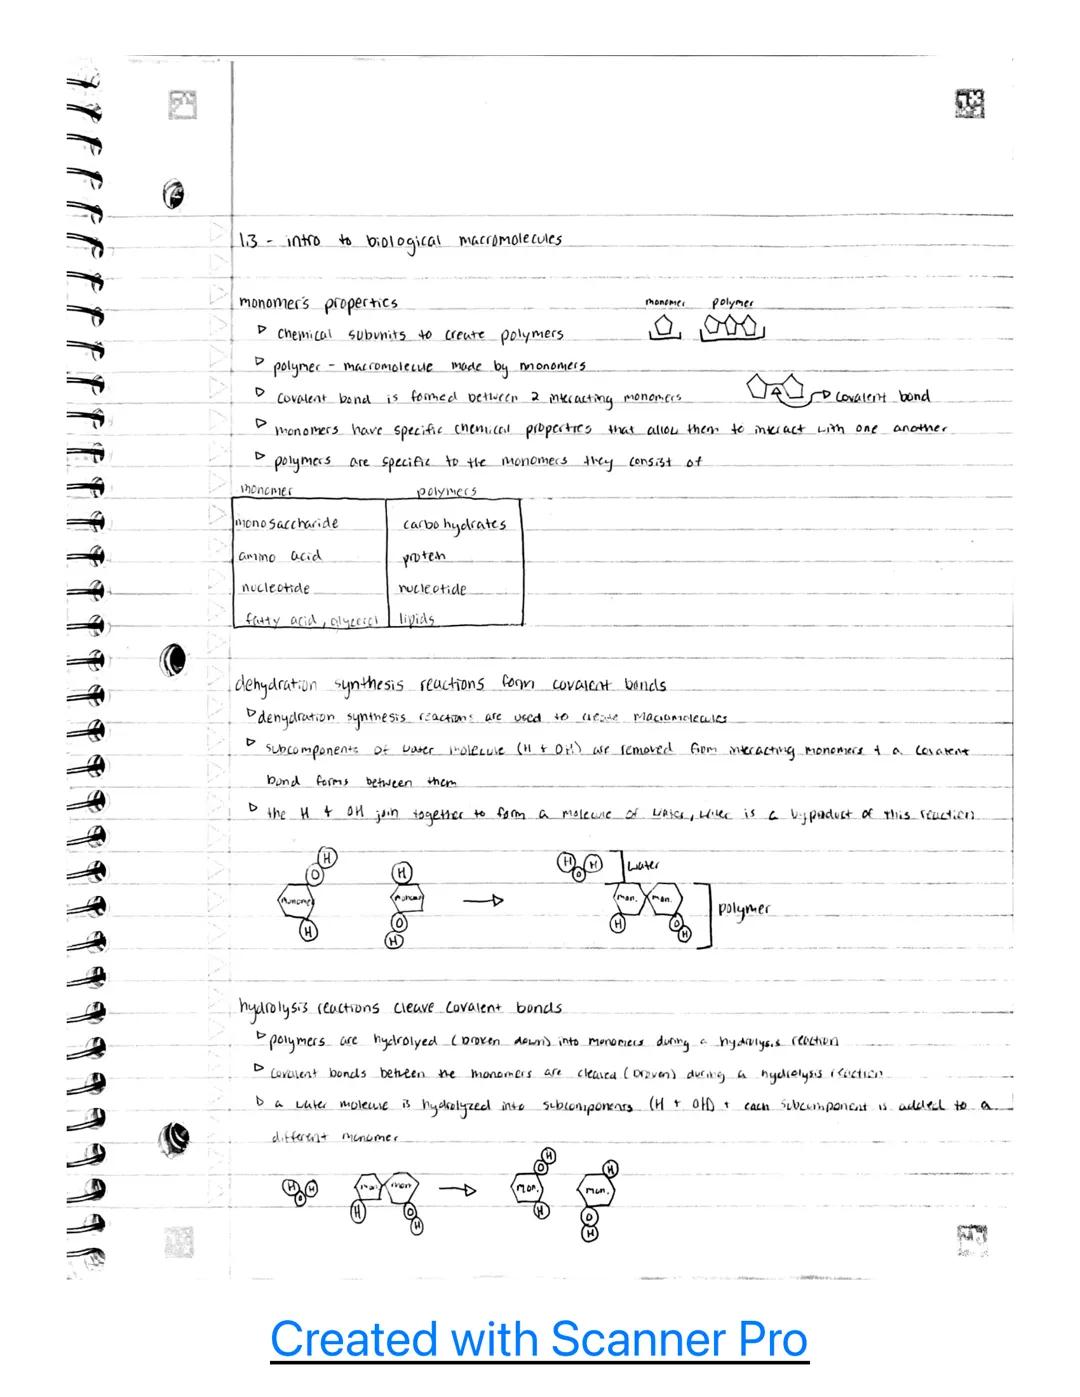 1.3 - intro to biological macromolecules
monomer's properties
monomer polymer
▷ chemical subunits to create polymers
▷ polymer - macromolecule made by monomers
▷ covalent bond is formed between 2 interacting monomers
covalent bond
▷ monomers have specific chemical properties that allow them to interact with one another
▷ polymers are specific to the monomers they consist of
monomer polymers
monosaccharide carbohydrates
amino acid protein
nucleotide nucleotide
fatty acid, glycerol lipids
dehydration synthesis reactions form covalent bonds
▷ dehydration synthesis reactions are used to create macromolecules
▷ subcomponents of water molecule (H + OH) are removed from interacting monomers + a covalent
bond forms between them
▷ the H + OH join together to form a molecule of water, water is a byproduct of this reaction
H O monomer H
H monomer O H
→
H O H water
mon. mon. H O H polymer
hydrolysis reactions cleave covalent bonds
▷ polymers are hydrolyed (broken down) into monomers during a hydrolysis reaction
▷ covalent bonds between the monomers are cleaved (broken) during a hydrolysis reaction
▷ a water molecule is hydrolyzed into subcomponents (H + OH) + each subcomponent is added to a
different monomer
H O H mon. mon H O H → H O mon. H H mon. O H
Created with Scanner Pro